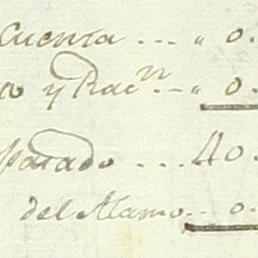 Cuenta ... " 0.
o y Racn.. " 0.
Parado ... 40.
del Alamo.. 0.